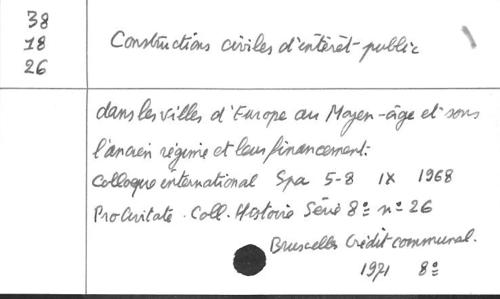 38
18
26
Constructions civiles d'intérêt-public
dans les villes d'Europe au Moyen-âge et sous
l'ancien régime et leur financement.
Colloque international Spa 5-8 IX 1968
Pro Civitate. Coll. Histoire Série 8º nº 26
Bruxelles Crédit communal.
1971 8º